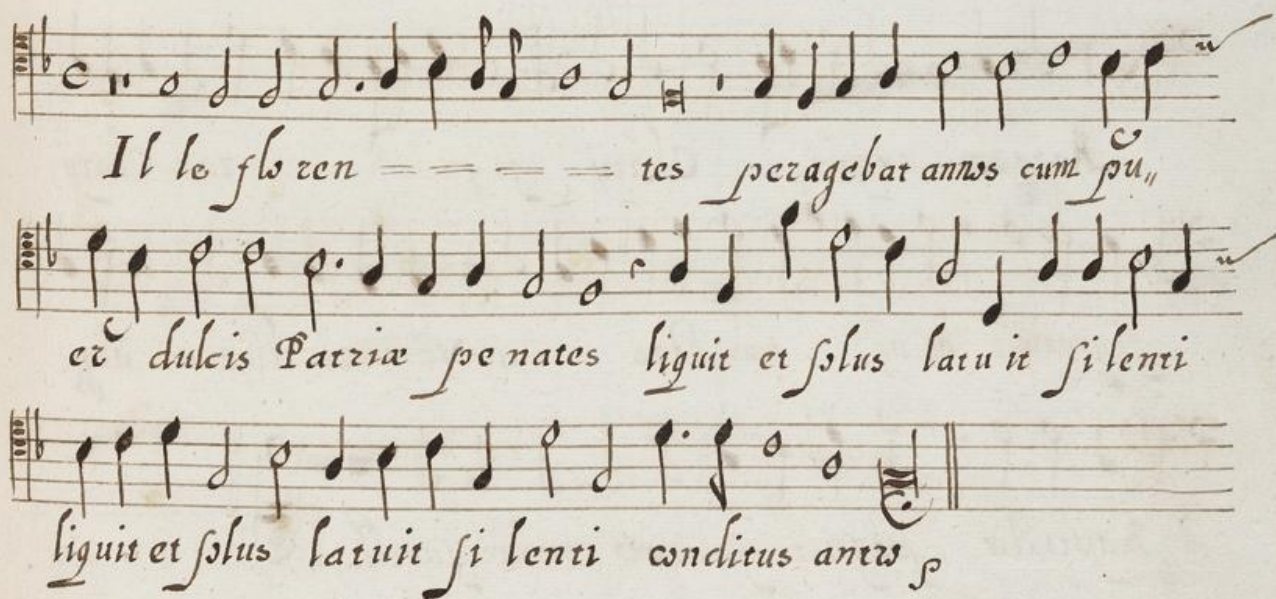 Il le flo ren = = = = = tes peragebat annos cum pu„
er dulcis Patriæ pe nates liquit et ſolus latu it ſi lenti
liquit et ſolus latuit ſi lenti conditus antro